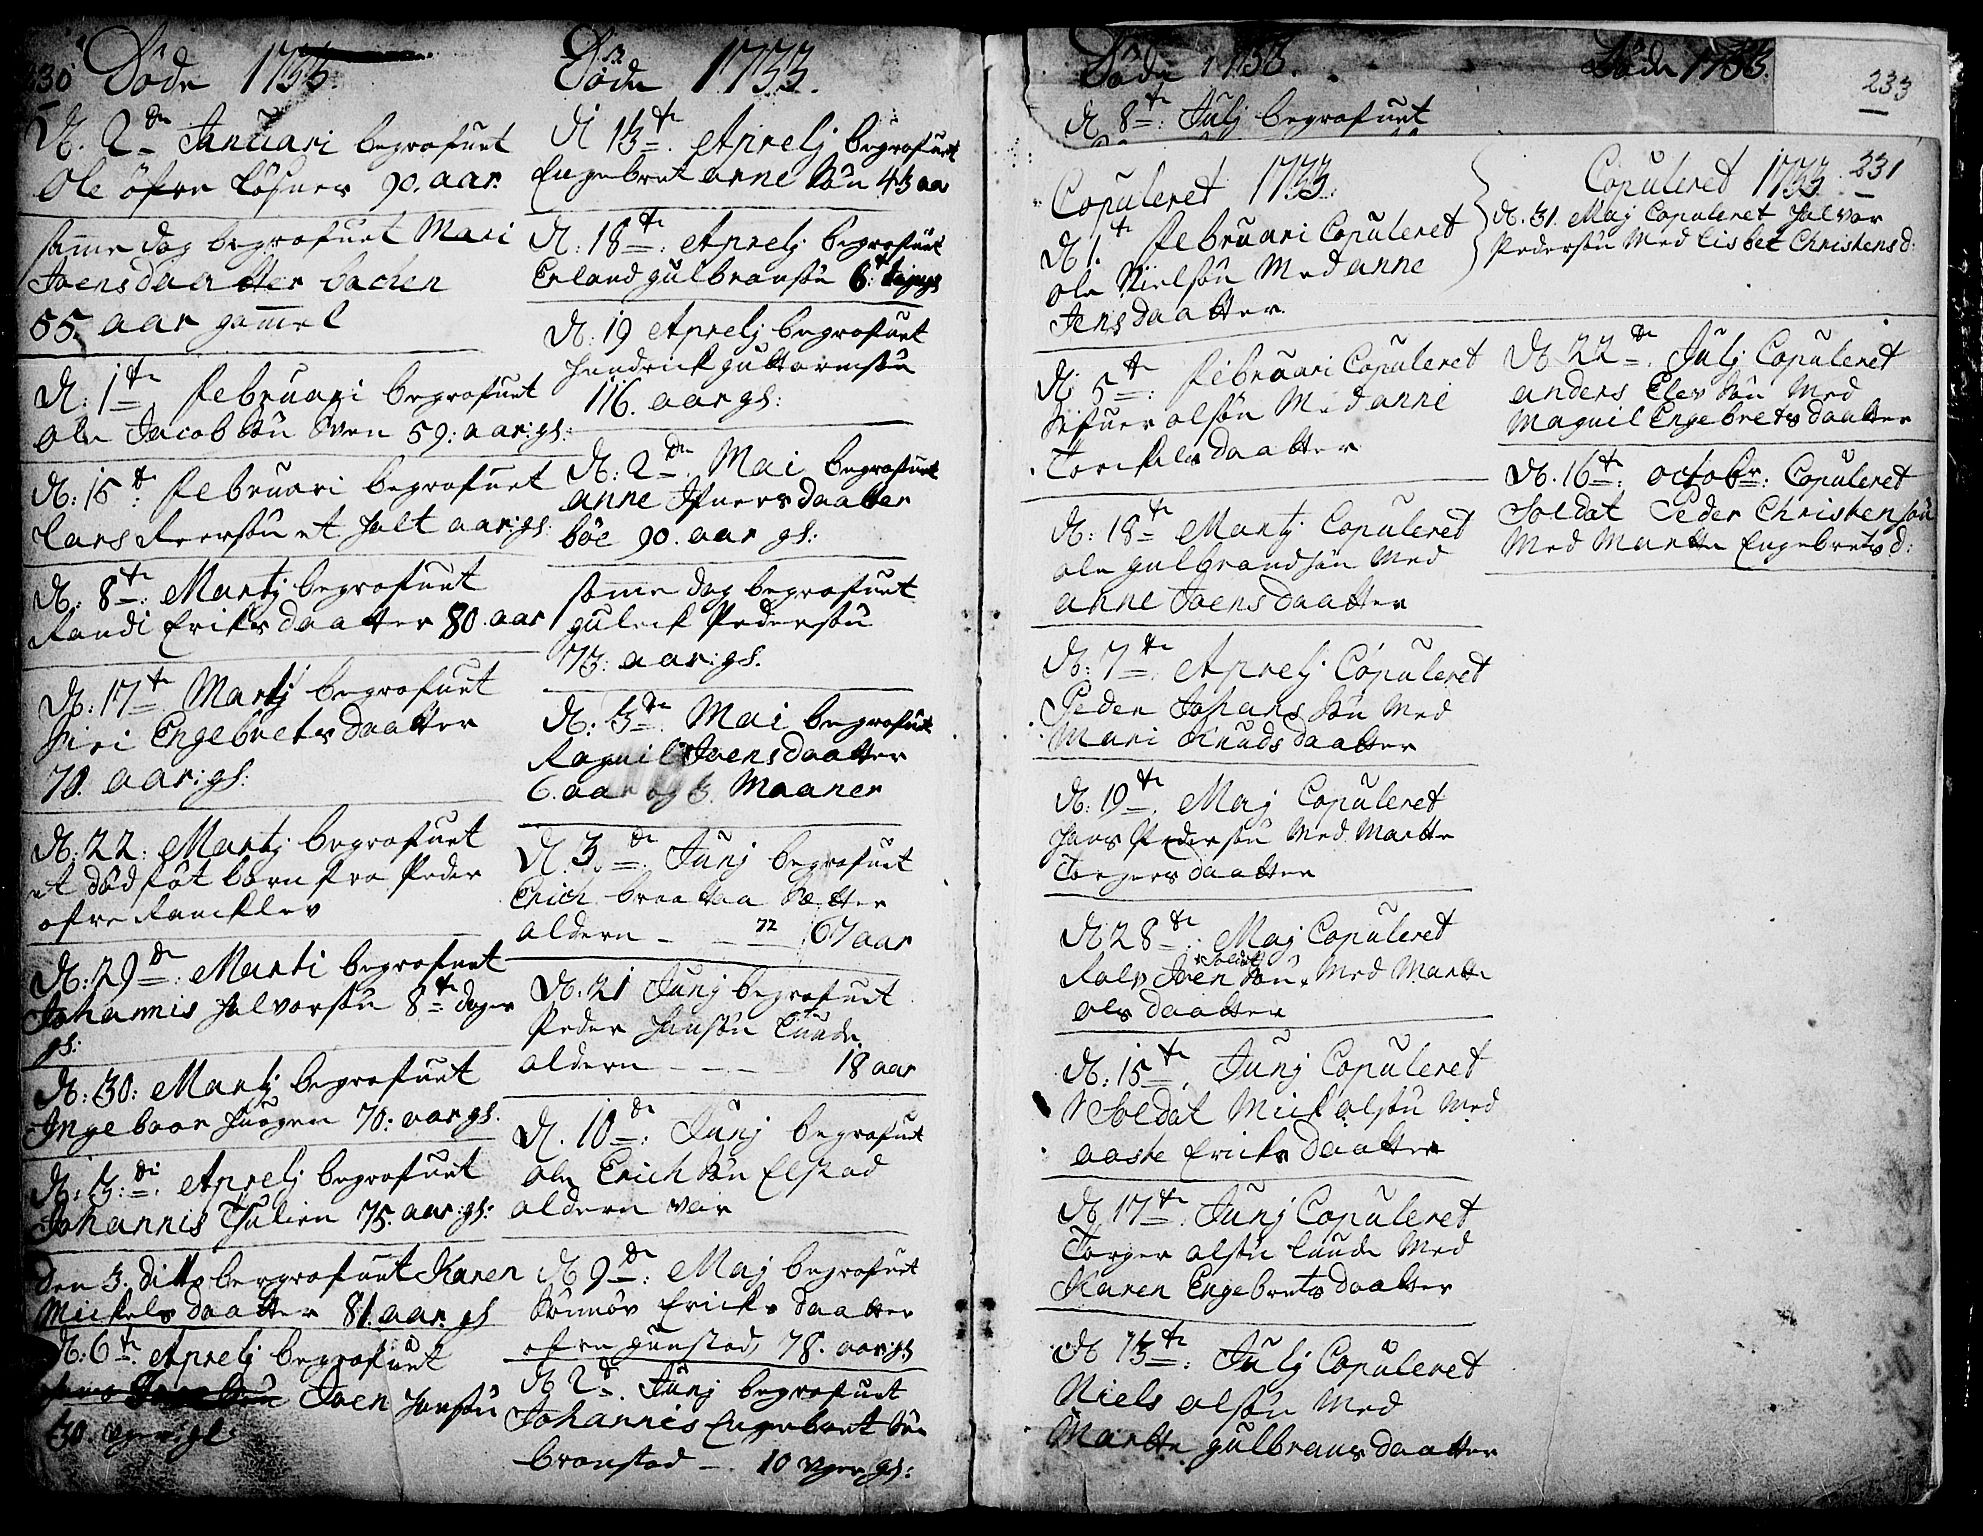 230 Döde 1733.
D. 2den Januari begrafuet
Ole öfre 90. aar
samme dag begrafuet Mari
Joensdaatter bachen
55. aar gammel
D: 1te Februari begrafuet
Ole Jacobsön Sven 59: aar: gl:
D: 15te Februari begrafuet
Lars et halt aar: gl:
D: 8te: Martj begrafuet
Randi Eriksdaatter 80. aar
D: 17te Martj begrafuet
Siri Engebretsdaatter
70. aar: gl:
D: 22: Martj begrafuet
et död föt barn fra Peder
ofre Rancklev
D: 29de: Marti begrafuet
Johannis Halvorsön 8te dager
gl:
D: 30: Martj begrafuet
Ingeboor Haagen 70: aar gl.
D: 3: de: Aprelj begrafuet
Johannis Thulien 75. aar: gl:
den 3. ditto bergrafuet Karen
Mickelsdaatter 81. aar. gl
D: 6te. Aprelj begrafuet
Joen Hansön
30. uger gl:
Döde 1733.
D 13te. Aprelj begrafuet
Engebret Arnesön 43 aar
D: 18te: Aprelj begrafuet
Erland gulbransön 6: dage
D: 19 Aprelj begrafuet
Hendrick guttormsön
116. aar gl:
D: 2den. Mai begrafuet
anne Ifuersdaatter
böe 90. aar gl:
samme dag begrafuet
gulick Pedersön
73: aar: gl.
D: 3de. Mai begrafuet
Raguil Joensdaatter
6. aar og 3. Maaner
D. 3. de. Junj begrafuet
Erich braataa Sætter
aldern - - 72 67 aar
D. 21 Junj begrafuet
Peder Hansön Lunde
aldern - - - 18 aar
D. 10de: Junj begrafuet
ole Erichsön Elstad
aldern var
D 9de: Maj begrafuet
Sönnöv Ericksdaatter
ofre gunstad, 78. aar: gl
D 2de. Junj begrafuet
Johannis Engebretsön
bronstad - . 10 uger gl:
Döde 1733.
D 8te: Julj begrafuet
Döde 1733.
233
Copuleret 1733.
D 1te Februari Copuleret
Ole Nielsön Med anne
Jensdaatter.
D: 5te: Februari Copuleret
Sifuer olsön Med anne
Torkelsdaatter
D: 18te Martj Copuleret
ole gulbrandsön Med
anne Joensdaatter
D: 7te. Aprelj Copuleret
Peder Johansön Med
Mari Knudsdaatter
D: 19te. Maj Copuleret
Hans Pedersön Med Martte
Torgersdaatter
D 28de: Maj Copuleret
Soldat
Rals Joensön. Med Martte
olsdaatter
D: 15te. Junj Copuleret
Soldat Mick olsön Med
aaste Ericksdaatter
D 17te. Junj Copuleret
Torger olsön Lunde Med
Karen Engebretsdaatter
D 13te: Julj Copuleret
Niels olsön Med
Martte gulbransdaatter
Copuleret 1733. 231
D. 31. Maj Copuleret Halvor
Pedersön Med Lisbet Christensd:
D 22de. Julj Copuleret
anders Elevsön Med
Maguil Engebretsdaatter
D. 16te: octobr: Copuleret
Soldat Peder Christensön
Med Martte Engebretsd: